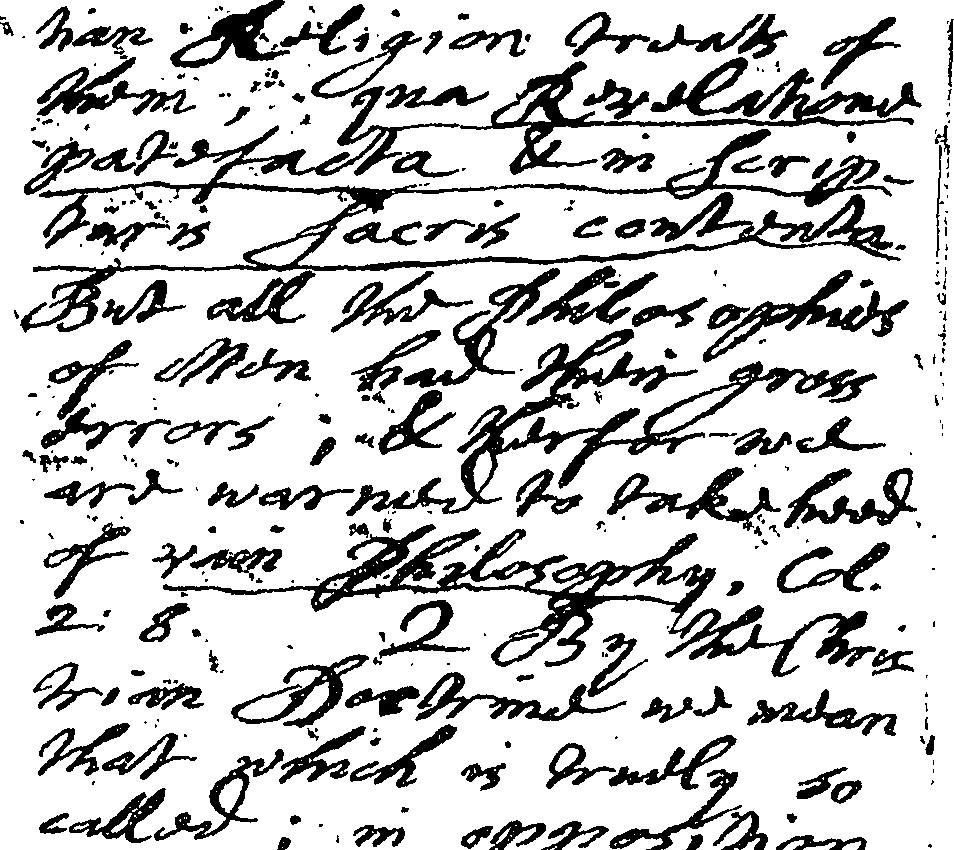 tian Religion treats of
them, qua Revelatione
patefacta & in Scrip-
turis sacris contenta.
But all the Philosophies
of Men had their gross
errors; & therfor we
are warned to take heed
of vien Philosophy, Col.
2: 8. 2 By the Chris
trian Doctrine we mean
that which is truely so
called; in opposition